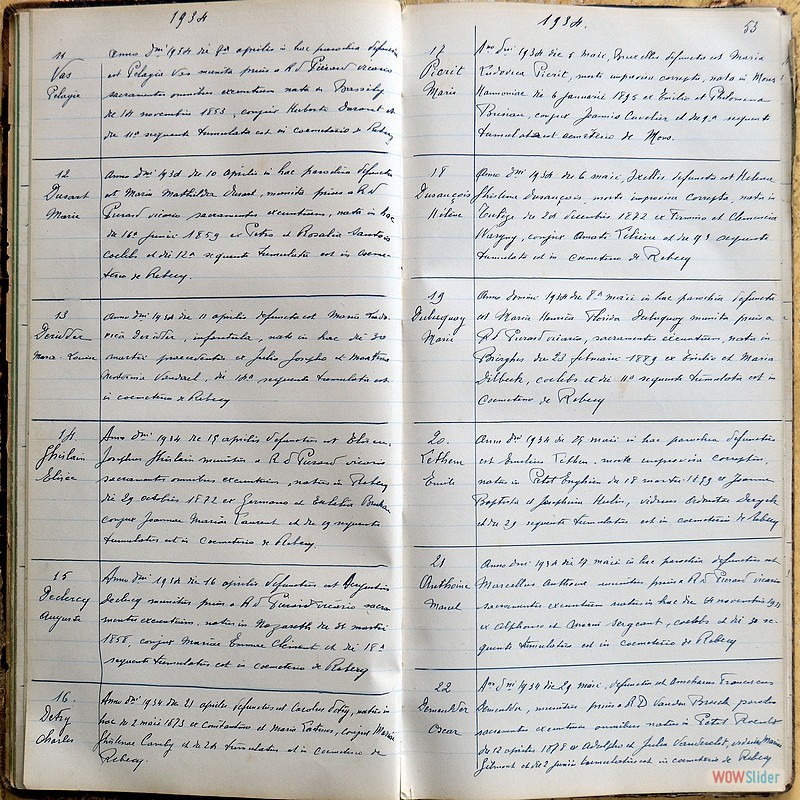 1934
11
Vas
Pelagie
Anno Dni 1934 die 9a aprilis in hac parochia defuncta
est Pelagia Vas munita prius a R d Pierard vicario
sacramentis omnibus exeuntium nata in
die 14 novembris 1853, conjux Huberti Durant et
die 11a sequente tumulata est in coemeterio de Rebecq
12
Dusart
Marie
Anno Dni 1934 die 10 Aprilis in hac parochia defuncta
est Maria Mathilda Dusart, munita prius a R d
Pierard vicario sacramentis exeuntium, nata in hac
die 16a Junii 1859 ex Petro et Rosalia
coelebs et die 12a sequente tumulata est in coeme-
terio de Rebecq.
13
Deridder
Marie-Louise
Anno Dni 1934 die 11 aprilis defuncta est Maria Ludo-
vica Deridder, infantula, nata in hac die 30
martii praecedentis ex Julio Josepho et Martha
Vandael, die 14a sequente tumulata est
in coemeterio de Rebecq
14.
Ghislain
Elisée
Anno Dni 1934 die 15 aprilis defunctus est Elisaeus
Josephus Ghislain munitus a R d Pierard vicario
sacramentis omnibus exeuntium, natus in Rebecq
die 29 octobris 1872 ex Germano et
conjux Joannae Mariae Laurent et die 19 sequente
tumulatus est in coemeterio de Rebecq.
15
Declercq
Auguste
Anno Dni 1934 die 16 aprilis defunctus est Augustinus
Declercq munitus prius a R d Pierard vicario sacra-
mentis exeuntium, natus in Nazareth die 31 martii
1858, conjux Mariae Clement et die 18a
sequente tumulatus est in coemeterio de Rebecq
16.
Detry
Charles
Anno Dni 1934 die 21 aprilis defunctus est Carolus Detry, natus in
hac die 2 maii 1873 ex Constantino et Maria conjux Mariae
Ghislenae et die 24 tumulatus est in coemeterio de
Rebecq.
1934.
53
17
Pierit
Marie
Anno Dni 1934 die 5 maii, Bruxelles defuncta est Maria
Ludovica Pierit, morte improvisa correpta, nata in Mons
Hannoniae die 6 Januarii 1895 ex Emilio et Philomena
conjux Joannis Cuvelier et die 9a sequente
tumulata est coemeterio de Mons.
18
Dusançois
Hélène
Anno Dni 1934 die 6 maii, Ixelles defuncta est Helena
Ghislena Dusançois, morte improvisa correpta, nata in
die 20 decembris 1872 ex Firmino et Clementia
conjux Amati et die 9 sequente
tumulata est in coemeterio de Rebecq
19
Dubucquoy
Marie
Anno domini 1934 die 8a maii in hac parochia defuncta
est Maria Henrica Florida Dubucquoy munita prius a
R d Pierard vicario, sacramentis exeuntium, nata in
Bierghes die 23 februarii 1889 ex Emilio et Maria
Dilbeck, coelebs et die 11a sequente tumulata est in
coemeterio de Rebecq
20.
Tethem
Emile
Anno Dni 1934 die 25 maii in hac parochia defunctus
est Emilius Tethem, morte improvisa correptus,
natus in Petit Enghien die 18 martii 1879 ex Joanne
Baptista et Josephina Hulin, viduus
et die 29 sequente tumulatus est in coemeterio de Rebecq
21
Anthoine
Marcel
Anno Dni 1934 die 27 maii in hac parochia defunctus est
Marcellus Anthoine munitus prius a R d Pierard vicario
sacramentis exeuntium natus in hac die 14 novembris
ex Alphonso et Sergeant, coelebs et die 30 se-
quente tumulatus est in coemeterio de Rebecq
22
Demesmaeker
Oscar
Anno Dni 1934 die 29 maii, defunctus est Franciscus
munitus prius a R D Vanden Broeck parocho
sacramentis exeuntium omnibus natus in Petit Roeulx
die 12 aprilis 1878 ex Adolpho et Julia viduus Mariae
Gilmont et die 2 Junii tumulatus est in coemeterio de Rebecq
WOWSlider